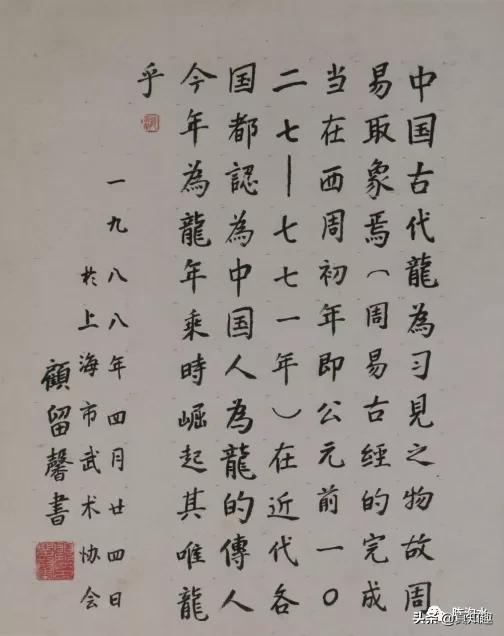 中国古代龍為习見之物故周
易取象焉（周易古經的完成
当在西周初年即公元前一〇
二七—七七一年）在近代各
国都認為中国人為龍的傳人
今年為龍年乘時崛起其唯龍
乎
一九八八年四月廿四日
於上海市武术协会
顧留馨書
头条